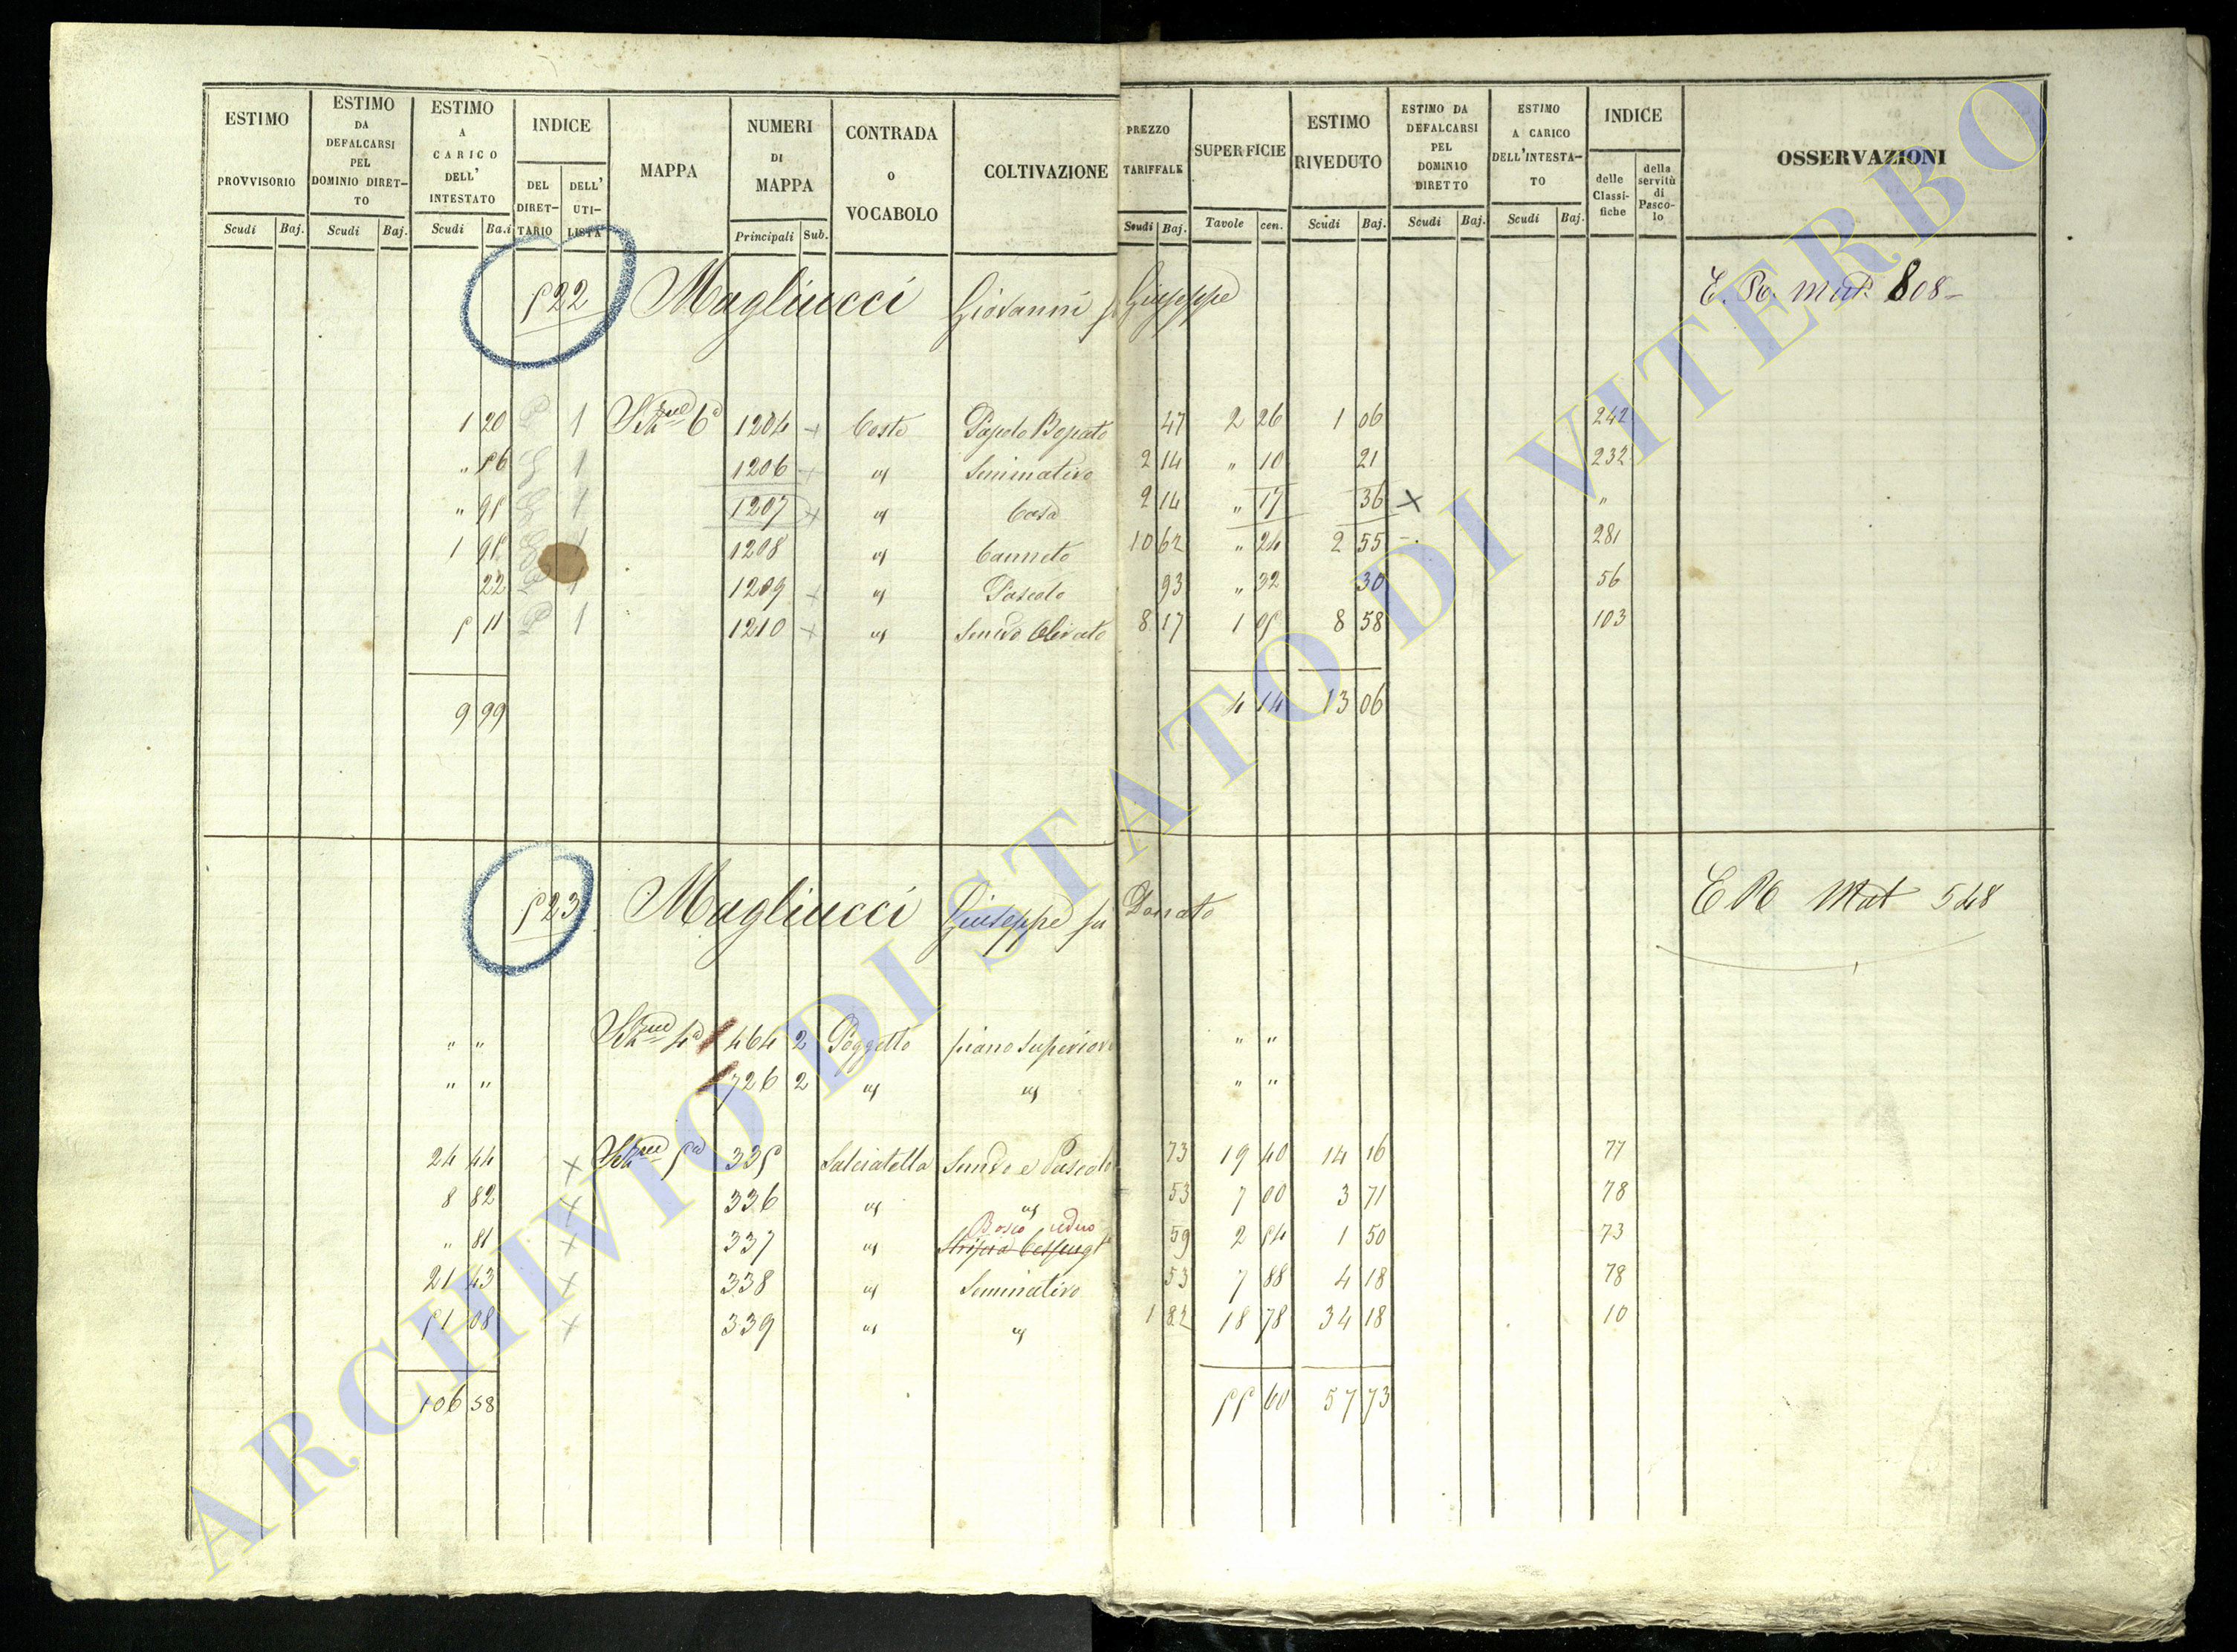 ESTIMO PROVVISORIO Scudi Baj.
ESTIMO DA DEFALCARSI PEL DOMINIO DIRET-TO Scudi Baj.
ESTIMO A CARICO DELL' INTESTATO Scudi Ba.i
INDICE DEL DIRET-TARIO DELL' UTI-LISTA
MAPPA
NUMERI DI MAPPA Principali Sub.
CONTRADA o VOCABOLO
COLTIVAZIONE
PREZZO TARIFFALE Scudi Baj.
SUPERFICIE Tavole cen.
ESTIMO RIVEDUTO Scudi Baj.
ESTIMO DA DEFALCARSI PEL DOMINIO DIRETTO Scudi Baj.
ESTIMO A CARICO DELL'INTESTA-TO Scudi Baj.
INDICE delle Classi-fiche della servitù di Pasco-lo
OSSERVAZIONI
522 Magliucci Giovanni fu Giuseppe 808
1 20 1 6a 1204 Coste 47 2 26 1 06 242
" 56 1 1206 " Seminativo 2 14 " 10 21 232
" 95 1 1207 " Casa 2 14 " 17 36 "
1 95 1 1208 " Canneto 10 62 " 24 2 55 281
22 1 1209 " Pascolo 93 " 32 30 56
5 11 1 1210 " Semivo Olivato 8 17 1 05 8 58 103
9 99 4 14 13 06
523 Magliucci Giuseppe fu Donato Mut 548
" " 4a 464 2 Poggetto piano superiore " "
" " 726 2 " " " "
24 44 5a 335 Salciatella Semvo e Pascolo 73 19 40 14 16 77
8 82 336 " " 53 7 00 3 71 78
Bosco ceduo
" 81 337 " 59 2 54 1 50 73
21 43 338 " Seminativo 53 7 88 4 18 78
51 08 339 " " 1 82 18 78 34 18 10
106 58 55 60 57 73
ARCHIVIO DI STATO DI VITERBO